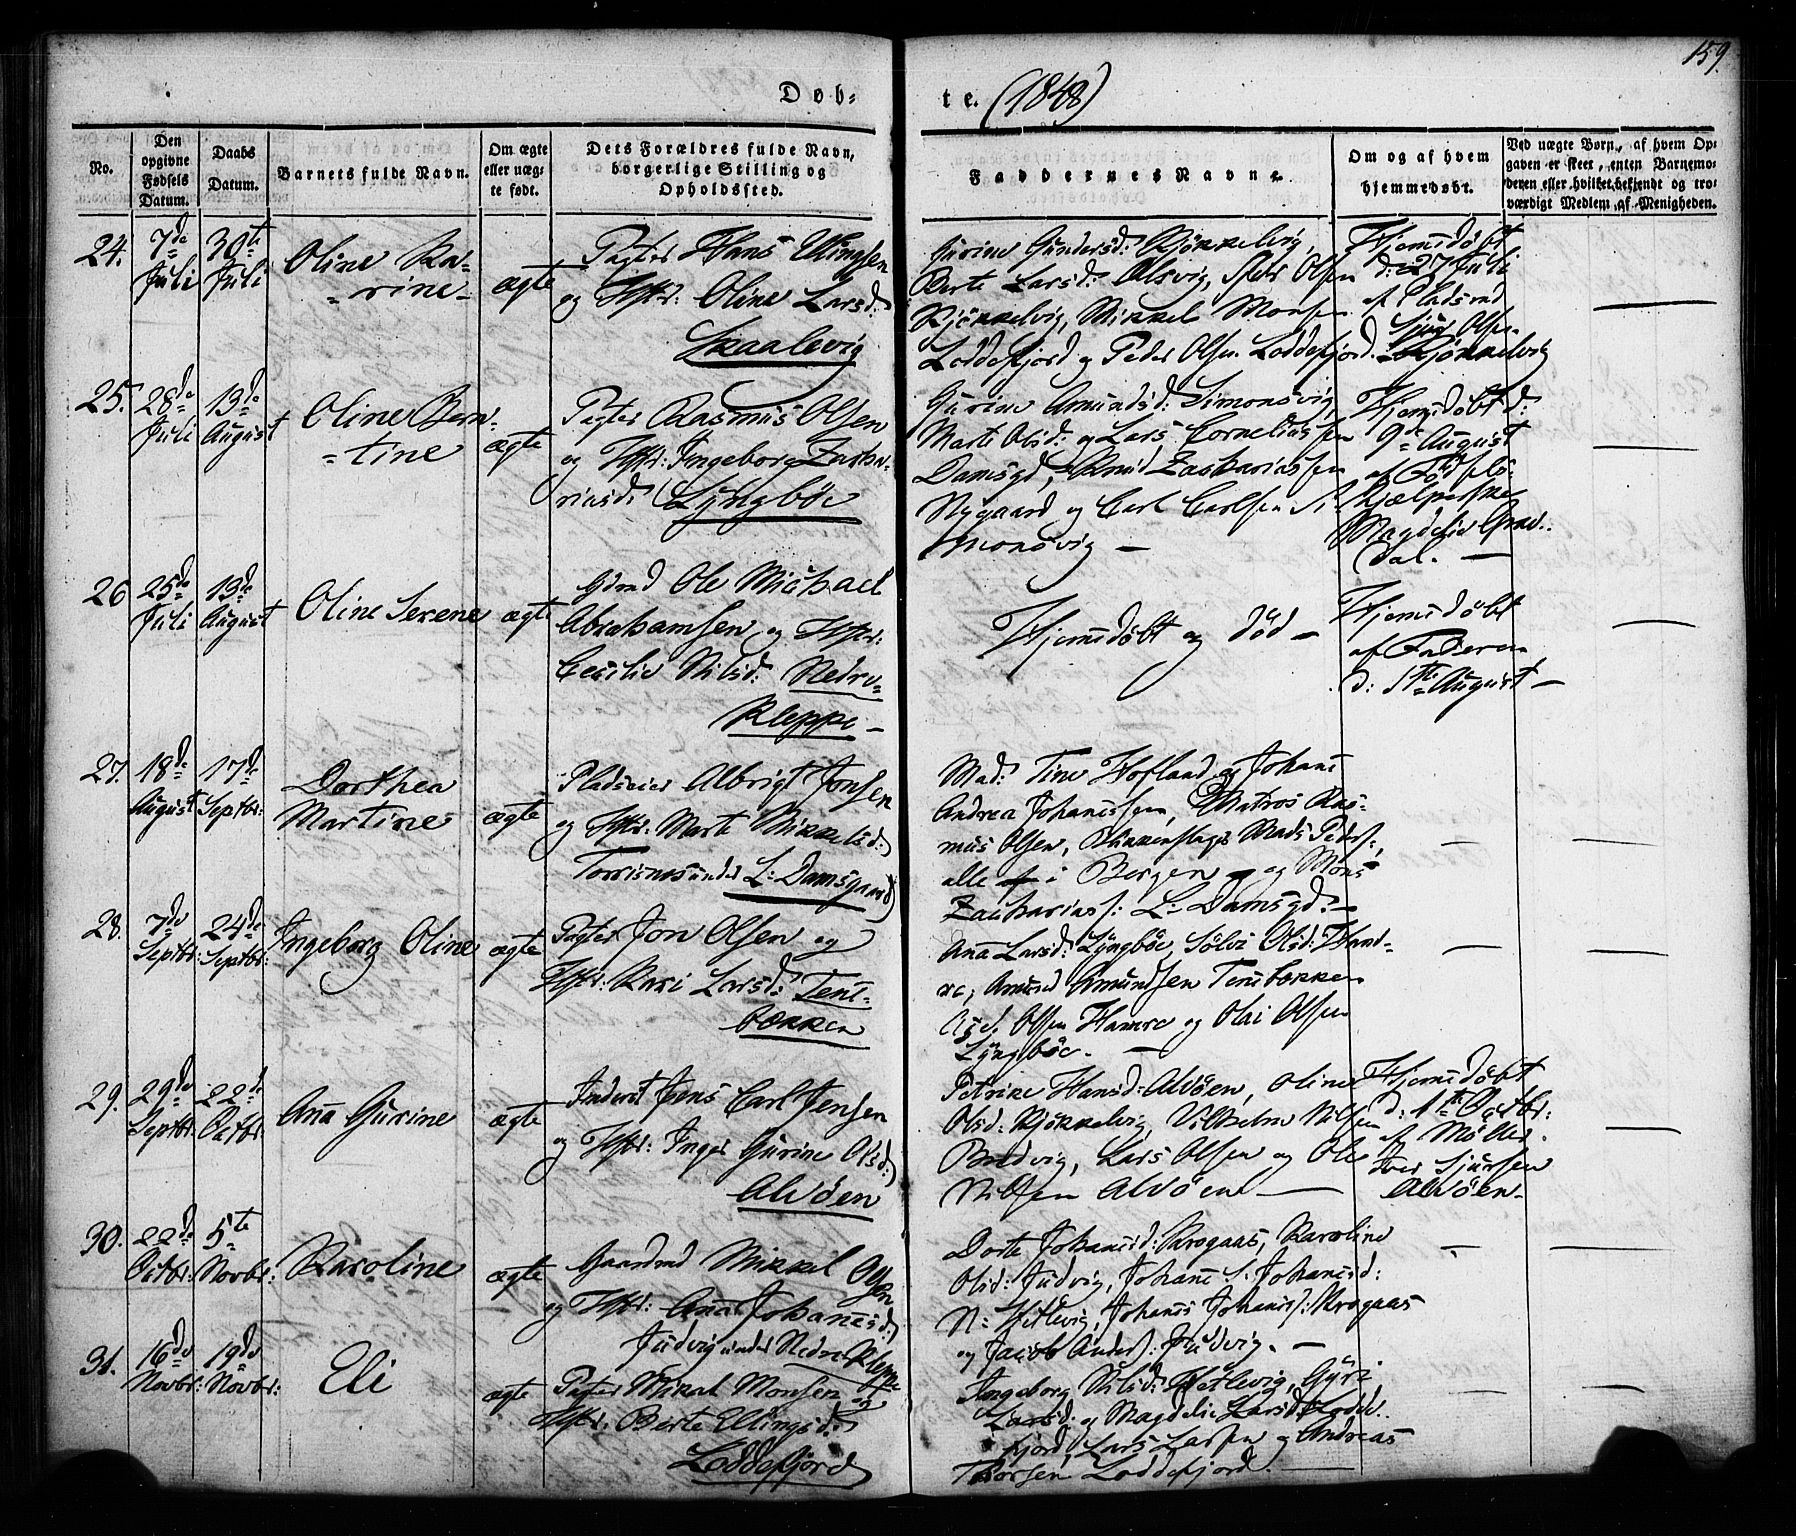 159.
Døb-
te. (1848)
No.
Den opgivne Fødsels Datum.
Daabs Datum.
Barnets fulde Navn.
Om ægte eller uægte født.
Dets Forældres fulde Navn, borgerlige Stilling og Opholdssted.
Faddernes Navne.
Om og af hvem hjemmedøbt.
Ved uægte Børn, af hvem Opgaven er skeet, enten Barnemoderen eller hvilket bekjendt og troværdigt Medlem af Menigheden.
24.
7de Juli
30te Juli
Oline Ka-
rine
ægte
Pagter Hans Ellingsen
og Hstr: Oline Larsd:
Skaalevig
Gurine Gundersd: Kjøkkelvig,
Berte Larsd: Alsvig, Peder Olsen
Kjøkkelvig, Mikkel Monsen
Loddefjord og Peder Olsen Loddefjord.
Hjemedøbt
d: 27 Juli
af Pladsmd
Sjur Olsen
Kjøkkelvig
25.
28de Juli
13de August
† Oline Bern-
tine
ægte
Pagter Rasmus Olsen
og Hstr: Ingeborg Zacha-
riasd: Lyngbøe
Gurine Amundsd: Simonsvig,
Marte Olsd: og Lars Corneliussen
Damsgd, Knud Zachariassen
Nygaard og Carl Carlsen Si-
monsvig —
Hjemedøbt d:
9de August
af Fødsels-
hjælperske
Magdelie Grav-
dal. —
26
25de Juli
13de August
† Oline Serene
ægte
Gdmd Ole Michael
Abrahamsen og Hstr:
Cecilie Nilsd: Nedre-
Kleppe —
Hjemedøbt og død —
Hjemedøbt
af Faderen
d: 1te August —
27.
18de August
17de Septbr:
Dorthea
Martine
ægte
Pladseier Albrigt Jonsen
og Hstr: Marte Mikkelsd:
Torrisnes under L: Damsgaard
Mad: Tine Hofland og Johane
Andrea Johanessen, Matros Ras-
mus Olsen, Blikkenslager Mads Peders:,
alle af i Bergen — og Mons
Zacharias: L: Damsgd. —
28.
7de Septbr:
24de Septbr:
Ingeborg Oline
ægte
Pagter Jon Olsen og
Hstr: Kari Larsd: Tene-
bækken
Ana Larsd: Lyngbøe, Sølvi Olsd: Ham-
re, Amund Amundsen Tenebækken
Olsen Hamre og Olai Olsen
Lyngbøe. —
29.
29de Septbr:
22de Octbr:
Ana Gurine
ægte
Inderst Jens Carl Jensen
og Hstr: Inger Gurine Olsd:
Alvøen
Petrike Hansd: Alvøen, Oline
Olsd: Kjøkkelvig, Vilhelm Nilsen
Bredvig, Lars Olsen og Ole
Nilsen Alvøen —
Hjemedøbt
d: 1te Octbr:
af Møller
Iver Sjursen
Alvøen —
30.
22de Octbr:
5te Novbr:
Karoline
ægte
Gaardmd Mikkel Olsen
og Hstr: Ana Johanesd:
Judvig under Nedre Kleppe
Dorte Johanesd: Krogaas, Karoline
Olsd: Judvig, Johane S. Johanesd:
N: Hetlevig, Johanes Johaness: Krogaas
og Jacob Anders: Judvig. —
31.
16de Novbr:
19de Novbr:
Eli
ægte
Pagter Mikal Monsen og
Hstr: Berte Ellingsd:
Loddefjord
Ingeborg Nilsd: Hetlevig, Gyri
Larsd: og Magdelie Larsd: Lodde-
fjord, Lars Larsen og Andreas
Thorsen Loddefjord. —